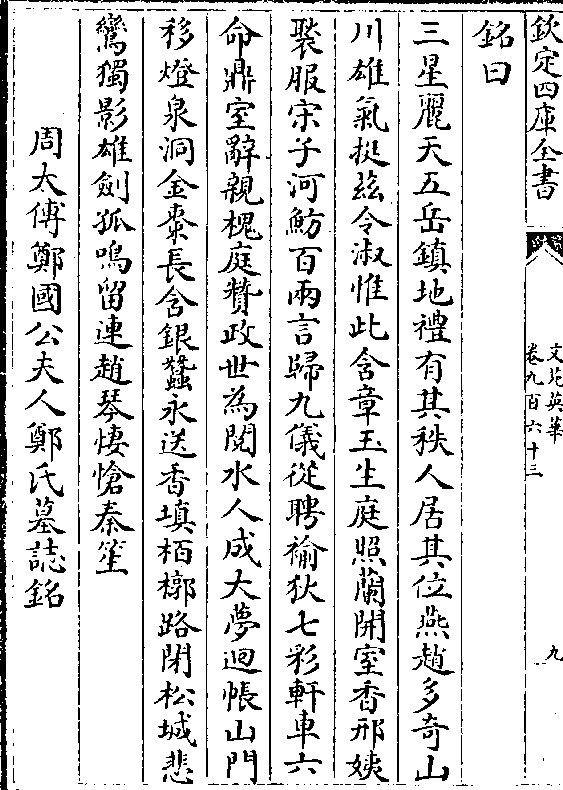 欽定四庫全書
文苑英華
卷九百六十三
九
銘曰
三星麗天五岳鎮地禮有其秩人居其位燕趙多奇山
川雄氣挺茲令淑惟此含章玉生庭照蘭開室香邢姨
褧服宋子河魴百兩言歸九儀從聘褕狄七彩軒車六
命鼎室辭親槐庭贊政世為閱水人成大夢迴帳山門
移燈泉洞金棗長含銀蠶永送香填栢槨路閉松城悲
鸞獨影雄劍孤鳴留連趙琴悽愴秦笙
周太傅鄭國公夫人鄭氏墓誌銘